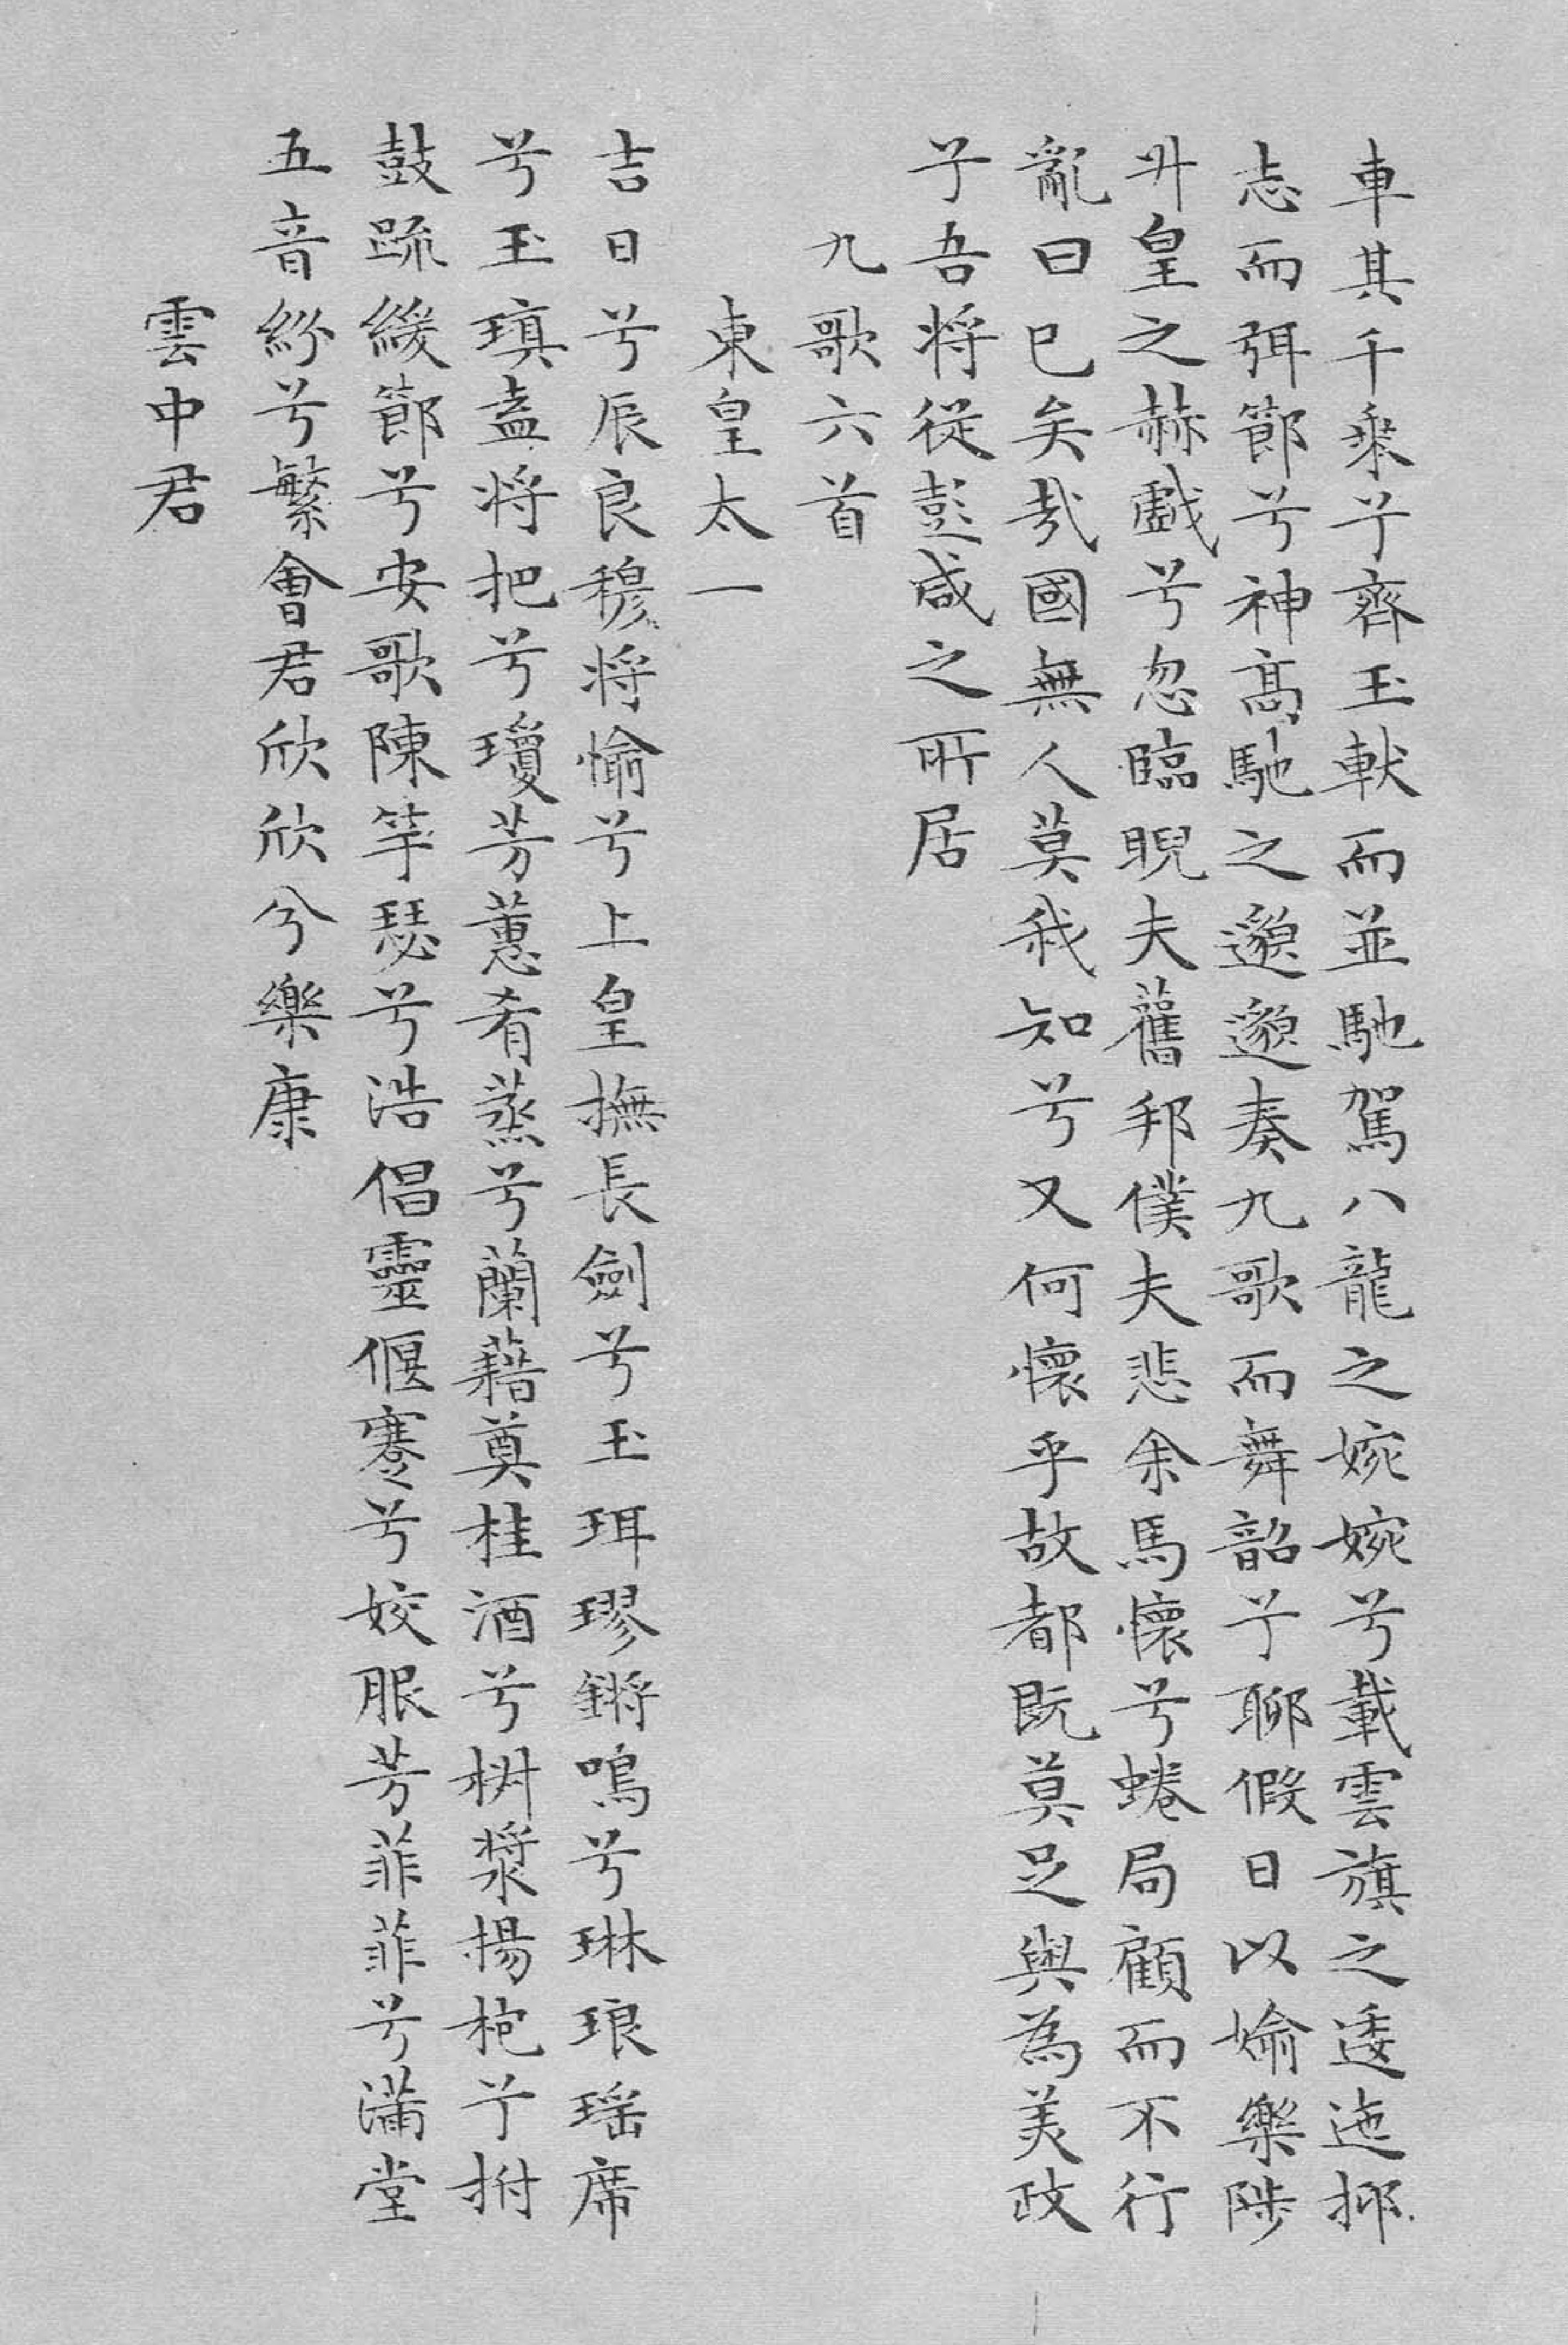 車其千乘兮齊玉軑而並馳駕八龍之婉婉兮載雲旗之逶迤抑
志而弭節兮神高馳之邈邈奏九歌而舞韶兮聊假日以媮樂陟
升皇之赫戲兮忽臨睨夫舊邦僕夫悲余馬懷兮蜷局顧而不行
亂曰已矣哉國無人莫我知兮又何懷乎故都既莫足與為美政
兮吾將從彭咸之所居
九歌六首
東皇太一
吉日兮辰良穆將愉兮上皇撫長劍兮玉珥璆鏘鳴兮琳琅瑤席
兮玉瑱盍將把兮瓊芳蕙肴蒸兮蘭藉奠桂酒兮椒漿揚枹兮拊
鼓疏緩節兮安歌陳竽瑟兮浩倡靈偃蹇兮姣服芳菲菲兮滿堂
五音紛兮繁會君欣欣兮樂康
雲中君